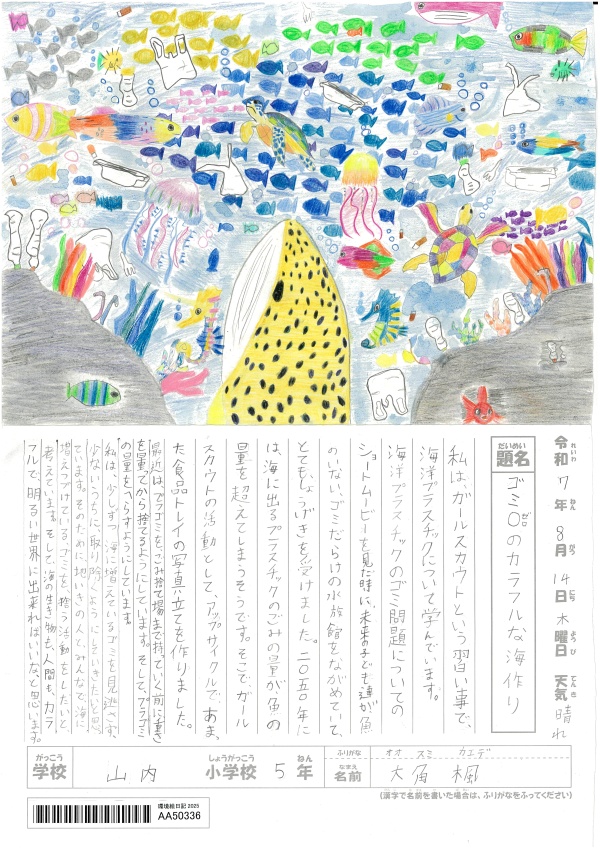 令和7年8月14日木曜日 天気 晴れ
れいわ ねん がつ にち ようび てんき
だいめい
題名
ゴミ0のカラフルな海作り
ゼロ
私は、ガールスカウトという習い事で、
海洋プラスチックについて学んでいます。
海洋プラスチックのゴミ問題についての
ショートムービーを見た時に、未来の子ども達が魚
のいない、ゴミだらけの水族館をながめていて、
とてもしょうげきを受けました。二〇五〇年に
は、海に出るプラスチックのごみの量が魚の
量を超えてしまうそうです。そこでガール
スカウトの活動として、アップサイクルで、あま
た食品トレイの写真立てを作りました。
最近は、プラゴミを、ごみ捨て場まで持ていく前に重さ
を量ってから捨てるようにしています。そして、プラゴミ
の量をへらすようにしています。
私は、少しずつ海に増えているゴミを見逃さず、
少ないうちに、取り除くようにしていきたいと思
ています。そのために地いきの人と、みんなで海に
増えつづけている、ゴミを捨う活動をしたいと、
考えています。そして、海の生き物も、人間も、カラ
フルで、明るい世界に出来ればいいな、と思います。
がっこう しょうがっこう ねん ふりがな オオ スミ カエデ
学校 山内 小学校 5年 なまえ 名前 大角 楓
(漢字で名前を書いた場合は、ふりがなをふってください)
環境絵日記 2025
AA50336